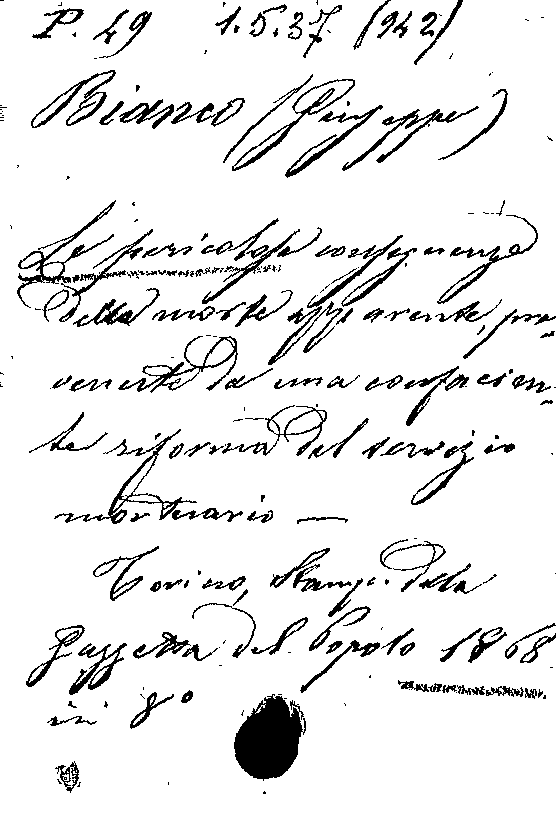 P. 49 1.5.37 (942)
Bianco (Giuseppe)
Le pericolose conseguenze
della morte apparente, pre-
venute da una confacien-
te riforma del servizio
mortuario —
Torino, Stamp. della
Gazzetta del Popolo 1868
in 8°